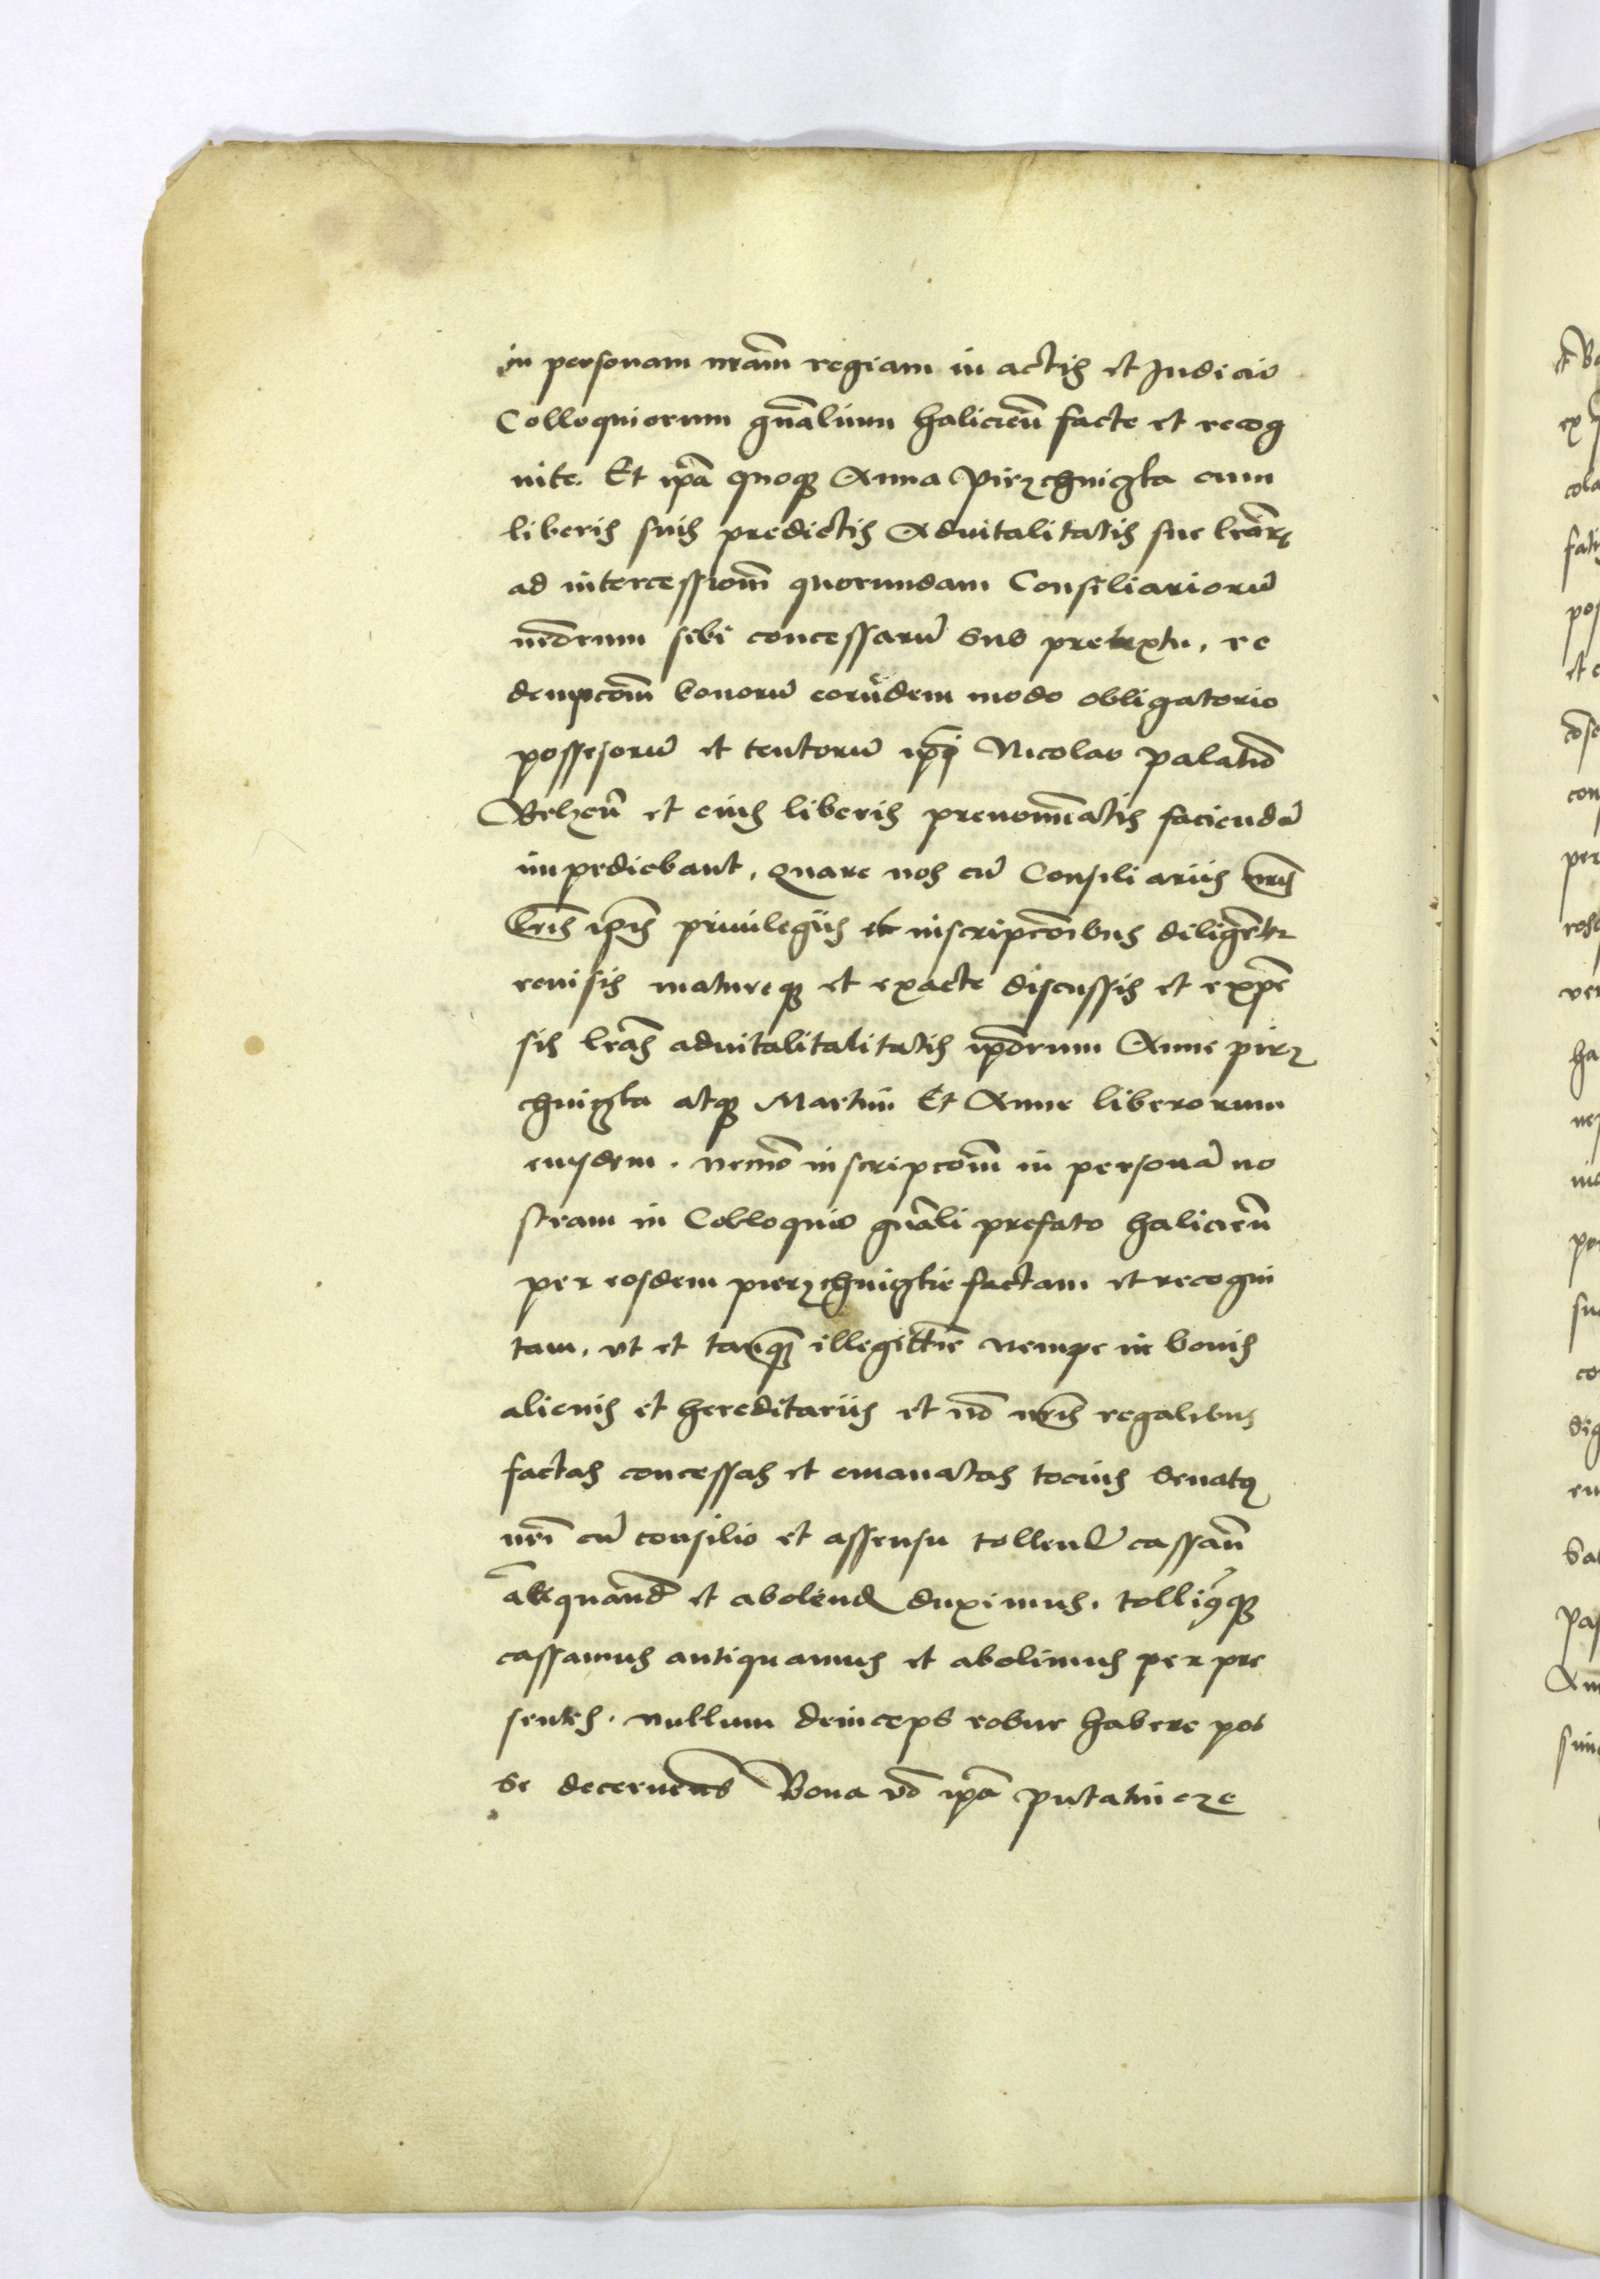 in personam nr̄am regiam in actis et Judicio
Colloquiorum gn̄alium halicień facte et recog
nite. Et ip̄a quoq; Anna Pirzchnigka cum
liberis suis predictis Aduitalitatis sue lr̄arꝝ
ad intercessiom̄ quorundam Consiliariorū
nr̄orum sibi concessarū sub pretextu, re
dempcōm̄ bonorū eorūdem modo obligatorio
possessorū et tentorū ip̄i Nicolao palatīo
Belzeń et eius liberis prenomīatis faciendā
impediebant, quare nos cū Consiliariis nr̄is
lr̄is ip̄is priuilegiis et inscripcōibus diligēter
reuisis matureq; et exacte discussis et expē
sis lr̄as aduitalitalitatis ip̄orum Anne pirz
chnigka atq; Martini Et Anne liberorum
eiusdem. necnō inscripcōm̄ in personā no
stram in Colloquio gn̄ali prefato halicień
per eosdem pierzchnigkie factam et recogni
tam, vt et tanq̄; illegittīe nempe in bonis
alienis et hereditariis et nō nr̄is regalibus
factas concessas et emanatas tocius Senatꝰ
nr̄i cū consilio et assensu tollenď cassań
antiquanď et abolenď duximus. tollimꝰq;
cassamus antiquamus et abolimus per pre
sentes. nullum deinceps robur habere pos
se decernens Bona vō ip̄a putatincze